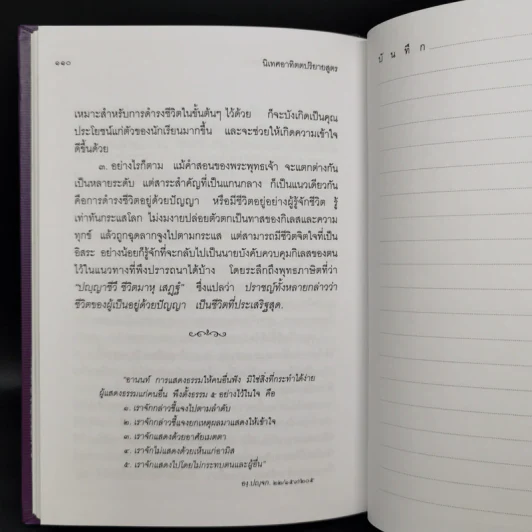 ๑๑๐ นิเทศอาทิตตปริยายสูตร
เหมาะสำหรับการดำรงชีวิตในขั้นต้นๆ ไว้ด้วย ก็จะบังเกิดเป็นคุณ
ประโยชน์แก่ตัวของนักเรียนมากขึ้น และจะช่วยให้เกิดความเข้าใจ
ดีขึ้นด้วย
๓. อย่างไรก็ตาม แม้คำสอนของพระพุทธเจ้า จะแตกต่างกัน
เป็นหลายระดับ แต่สาระสำคัญที่เป็นแกนกลาง ก็เป็นแนวเดียวกัน
คือการดำรงชีวิตอยู่ด้วยปัญญา หรือมีชีวิตอยู่อย่างผู้รู้จักชีวิต รู้
เท่าทันกระแสโลก ไม่งมงายปล่อยตัวตกเป็นทาสของกิเลสและความ
ทุกข์ แล้วถูกฉุดลากจูงไปตามกระแส แต่สามารถมีชีวิตจิตใจที่เป็น
อิสระ อย่างน้อยก็รู้จักที่จะกลับไปเป็นนายบังคับควบคุมกิเลสของตน
ไว้ในแนวทางที่พึงปรารถนาได้บ้าง โดยระลึกถึงพุทธภาษิตที่ว่า
"ปญฺญาชีวึ ชีวิตมาหุ เสฏฺฐํ" ซึ่งแปลว่า ปราชญ์ทั้งหลายกล่าวว่า
ชีวิตของผู้เป็นอยู่ด้วยปัญญา เป็นชีวิตที่ประเสริฐสุด.
"อานนท์ การแสดงธรรมให้คนอื่นฟัง มิใช่สิ่งที่กระทำได้ง่าย
ผู้แสดงธรรมแก่คนอื่น พึงตั้งธรรม ๕ อย่างไว้ในใจ คือ
๑. เราจักกล่าวชี้แจงไปตามลำดับ
๒. เราจักกล่าวชี้แจงยกเหตุผลมาแสดงให้เข้าใจ
๓. เราจักแสดงด้วยอาศัยเมตตา
๔. เราจักไม่แสดงด้วยเห็นแก่อามิส
๕. เราจักแสดงไปโดยไม่กระทบตนและผู้อื่น"
องฺ.ปญฺจก. ๒๒/๑๕๙/๒๐๕
บันทึก